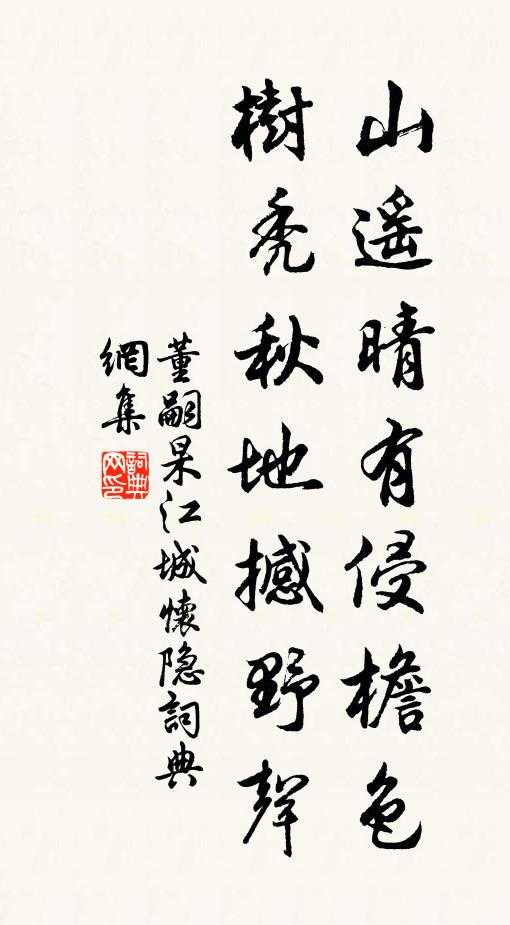 山遥晴有侵檐色
樹禿秋地撼野聲
董嗣杲江城懷隐詞典
網集
詞典网印